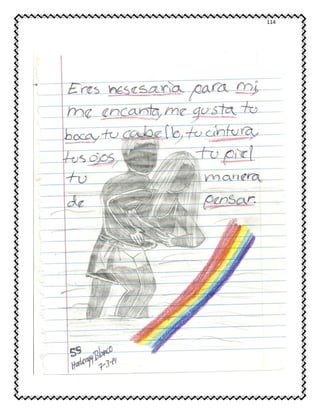 114
Eres nesesaria para mi,
me encanta, me gusta tu
boca, tu cabello, tu cintura,
tus ojos, tu piel
tu manera
de pensar.
59
Blanco
7-3-14